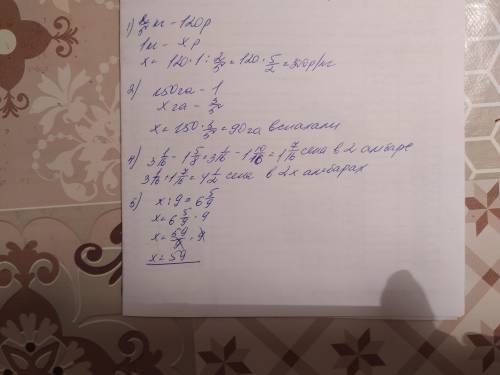 1) 2/5 кг - 120р
1кг - х р
х = 120 · 1 : 2/5 = 120 · 5/2 = 300р/кг
3) 150га - 1
х га - 3/5
х = 150 · 3/5 = 90га вспахали
4) 3 1/16 - 1 5/8 = 3 1/16 - 1 10/16 = 1 7/16 сена в 2 амбаре
3 1/16 + 1 7/16 = 4 1/2 сена в 2х амбарах
5) х : 9 = 6 5/9
х = 6 5/9 · 9
х = 59/9 · 9
х = 59